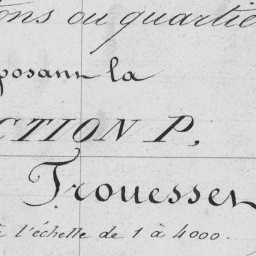 ons ou quartie
posant la
CTION P.
Trouesser
à l'échelle de 1 à 4000.